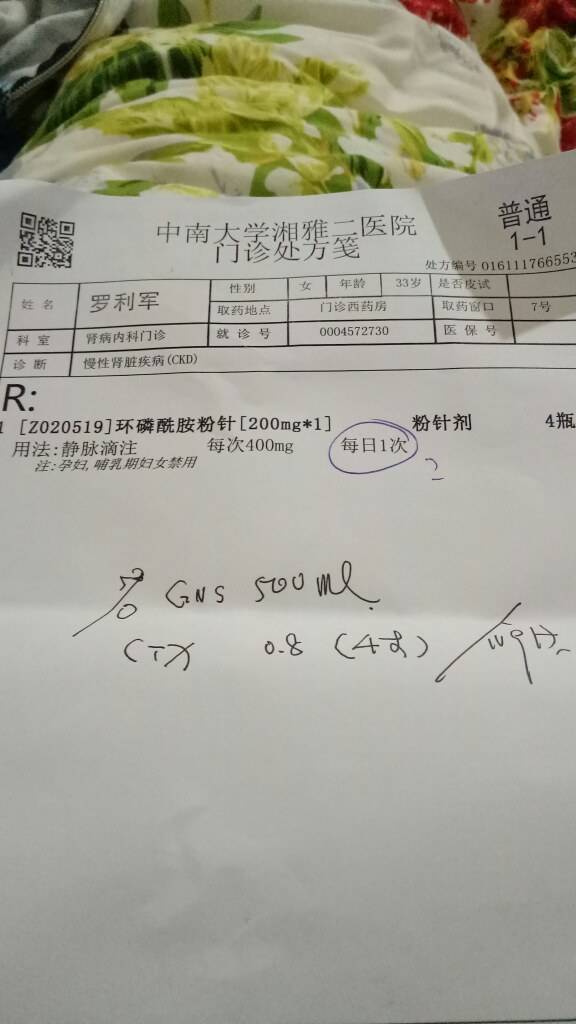 中南大学湘雅二医院
门诊处方笺
普通
1-1
处方编号 016111766553
姓 名 罗利军 性别 女 年龄 33岁 是否皮试
取药地点 门诊西药房 取药窗口 7号
科 室 肾病内科门诊 就 诊 号 0004572730 医 保 号
诊 断 慢性肾脏疾病(CKD)
R:
1 [Z020519]环磷酰胺粉针[200mg*1] 粉针剂 4瓶
用法:静脉滴注 每次400mg 每日1次
注:孕妇,哺乳期妇女禁用
?
GNS 500ml
CTX 0.8 (4支) / ivgtt